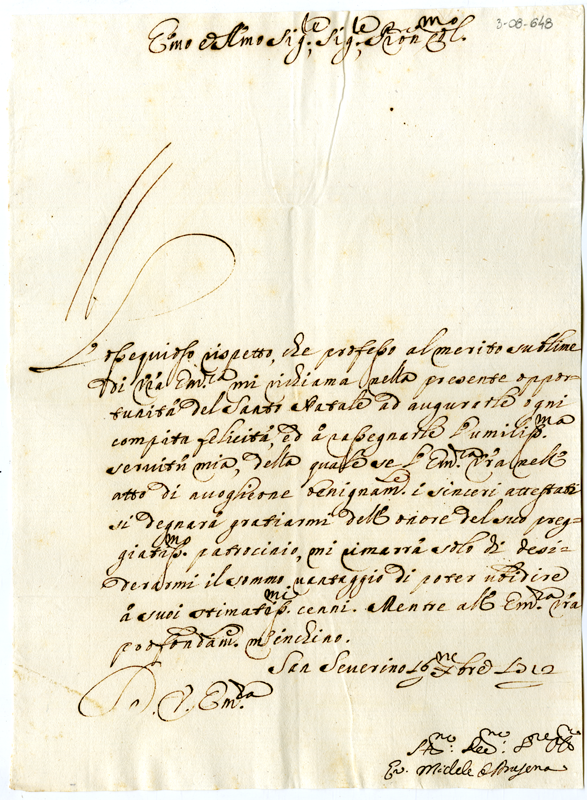 Emo e Rmo Sig.re Sig.re Pron Col.mo
3-08-648
L'ossequioso rispetto, che professo al merito sublime
di Vrã Em.za mi richiama nella presente oppor-
tunità del Santo Natale ad augurarle ogni
compita felicità, ed à rassegnarle l'umiliss.ma
servitù mia, della quale se l'Em.za Vrã nell'
atto di accoglierne benignam.e i sinceri attestati
si degnarà gratiarmi dell'onore del suo preg-
giatiss.mo patrocinio, mi rimarrà solo di desi-
derarmi il sommo vantaggio di poter ubidire
à suoi stimatiss.mi cenni. Mentre all'Em.za Vrã
profondam.e m'inchino.
San Severino Xbre 1712
D. V. Em.za
Michele